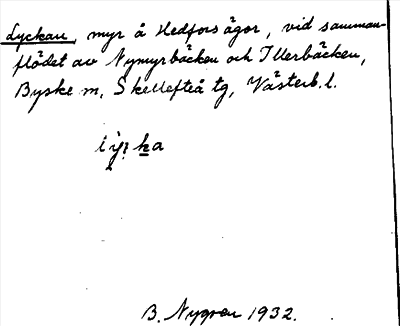 Lyckan, myr å Hedfors ägor, vid samman-
flödet av Nymyrbäcken och Illerbäcken,
Byske m, Skellefteå tg, Västerb. l.
B. Nygren 1932.